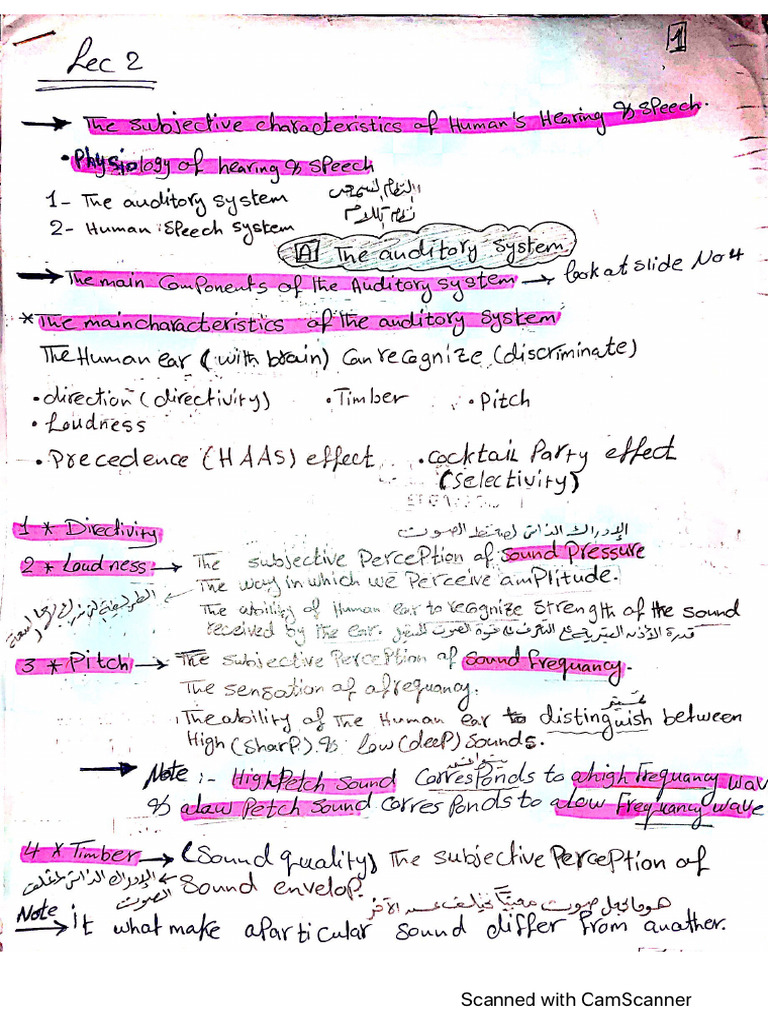 1
Lec 2
The subjective characteristics of Human's Hearing & speech.
• Physiology of hearing & speech
1- The auditory system النظام السمعي
2- Human speech system نظام الكلام
A The auditory System
The main Components of the Auditory system → look at slide No 4
* The main characteristics of the auditory System
The Human ear (with brain) Can recognize (discriminate)
• direction (directivity) • Timber • Pitch
• Loudness
• Precedence (HAAS) effect • Cocktail Party effect
(selectivity)
1 * Directivity الإدراك الذاتي لضغط الصوت
2 * Loudness → The subjective Perception of Sound Pressure
The way in which we Perceive amplitude.
The ability of Human ear to recognize strength of the sound
received by the ear.
3 * Pitch → The subjective Perception of Sound frequancy.
The sensation of a frequancy.
The ability of The Human ear to distinguish between
High (sharp) & Low (deep) Sounds.
Note :- High Petch Sound Corresponds to a high frequancy wav
& a law Petch Sound corresponds to a Low Frequancy wave
4 * Timber → (Sound quality) The subjective Perception of
Sound envelop.
هو ما يجعل صوت معيناً يختلف عن الآخر
Note → it what make a particular sound differ from another.
Scanned with CamScanner